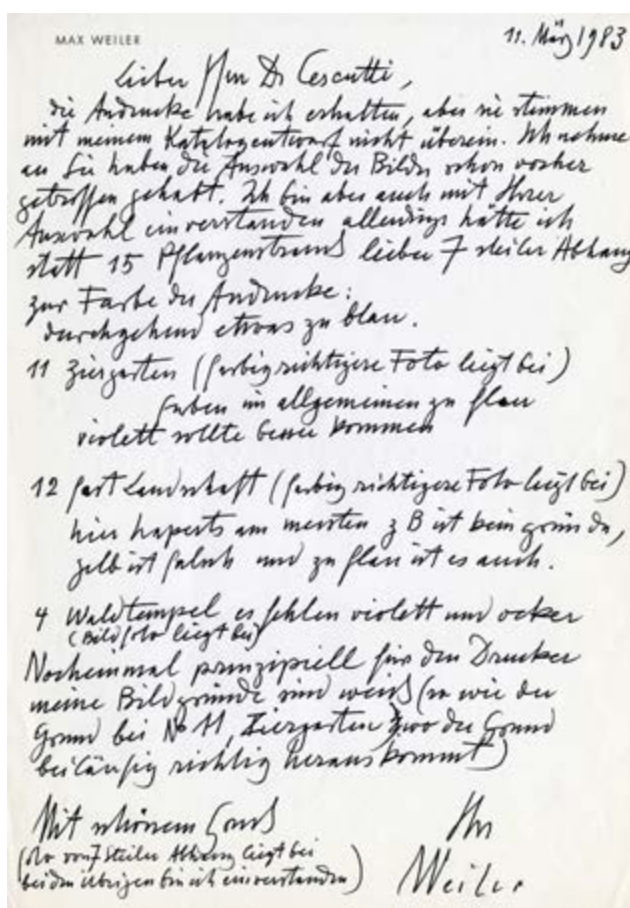 MAX WEILER
11. März 1983
Lieber Herr Dr Cescutti,
die Andrucke habe ich erhalten, aber sie stimmen
mit meinem Katalogentwurf nicht überein. Ich nehme
an Sie haben die Auswahl der Bilder schon vorher
getroffen gehabt. Ich bin aber auch mit Ihrer
Auswahl einverstanden allerdings hätte ich
statt 15 Pflanzenstrauß lieber 7 steiler Abhang
zur Farbe der Andrucke:
durchgehend etwas zu blau.
11 Ziergarten (farbig richtigere Foto liegt bei)
Farben im allgemeinen zu flau
violett sollte besser kommen
12 fast Landschaft (farbig richtigere Foto liegt bei)
hier haperts am meisten z B ist kein grün da,
gelb ist falsch und zu flau ist es auch.
4 Waldtempel es fehlen violett und ocker
(Bildfoto liegt bei)
Nocheinmal prinzipiell für den Drucker
meine Bildgründe sind weiß (so wie der
Grund bei No 11, Ziergarten, wo der Grund
beiläufig richtig herauskommt)
Mit schönem Gruß
Ihr
(Foto von 7 steiler Abhang liegt bei
bei den übrigen bin ich einverstanden)
Weiler